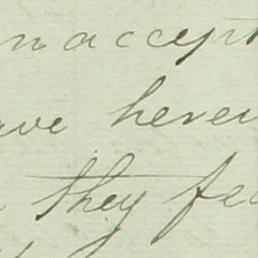 n accept
ave herei
they fea